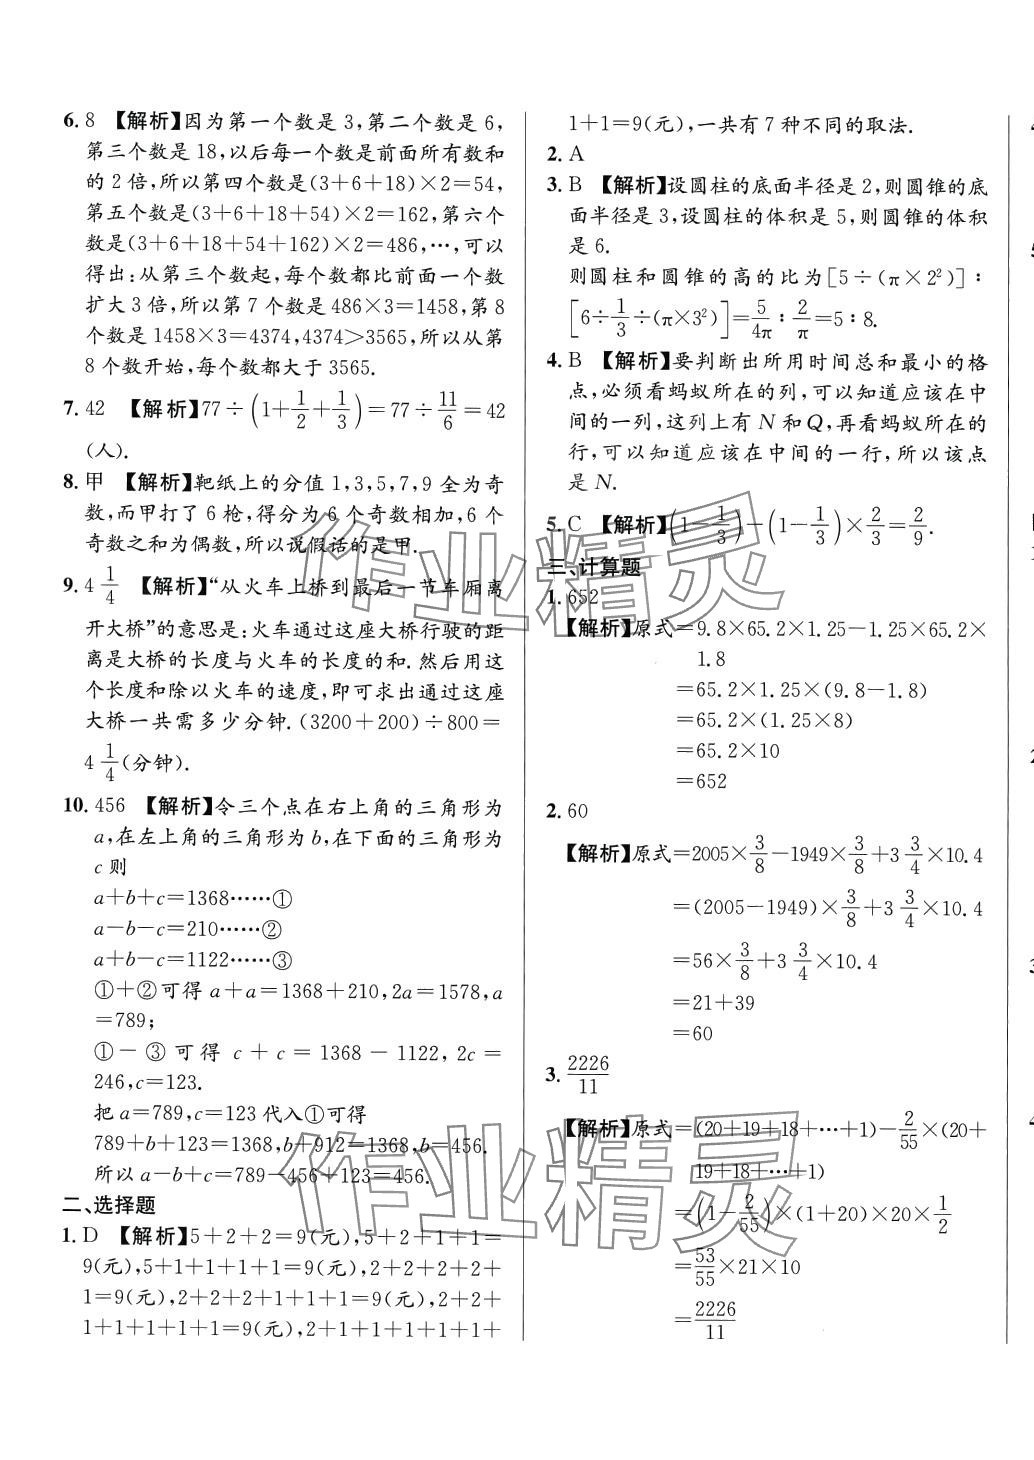 6. 8 【解析】因为第一个数是 3,第二个数是 6,
第三个数是 18,以后每一个数是前面所有数和
的 2 倍,所以第四个数是(3+6+18)×2=54,
第五个数是(3+6+18+54)×2=162,第六个
数是(3+6+18+54+162)×2=486,…,可以
得出:从第三个数起,每个数都比前面一个数
扩大 3 倍,所以第 7 个数是 486×3=1458,第 8
个数是 1458×3=4374,4374>3565,所以从第
8 个数开始,每个数都大于 3565.
7. 42 【解析】77÷(1+1/2+1/3)=77÷11/6=42
(人).
8. 甲 【解析】靶纸上的分值 1,3,5,7,9 全为奇
数,而甲打了 6 枪,得分为 6 个奇数相加,6 个
奇数之和为偶数,所以说假话的是甲.
9. 4 1/4 【解析】“从火车上桥到最后一节车厢离
开大桥”的意思是:火车通过这座大桥行驶的距
离是大桥的长度与火车的长度的和.然后用这
个长度和除以火车的速度,即可求出通过这座
大桥一共需多少分钟.(3200+200)÷800=
4 1/4(分钟).
10. 456 【解析】令三个点在右上角的三角形为
a,在左上角的三角形为 b,在下面的三角形为
c 则
a+b+c=1368……①
a-b-c=210……②
a+b-c=1122……③
①+②可得 a+a=1368+210,2a=1578,a
=789;
①-③可得 c+c=1368-1122,2c=
246,c=123.
把 a=789,c=123 代入①可得
789+b+123=1368,b+912=1368,b=456.
所以 a-b+c=789-456+123=456.
二、选择题
1. D 【解析】5+2+2=9(元),5+2+1+1=
9(元),5+1+1+1+1=9(元),2+2+2+2+
1=9(元),2+2+2+1+1+1=9(元),2+2+
1+1+1+1+1=9(元),2+1+1+1+1+1+
1+1=9(元),一共有 7 种不同的取法.
2. A
3. B 【解析】设圆柱的底面半径是 2,则圆锥的底
面半径是 3,设圆柱的体积是 5,则圆锥的体积
是 6.
则圆柱和圆锥的高的比为[5÷(π×2²)]:
[6÷1/3÷(π×3²)]=5/4π:2/π=5:8.
4. B 【解析】要判断出所用时间总和最小的格
点,必须看蚂蚁所在的列,可以知道应该在中
间的一列,这列上有 N 和 Q,再看蚂蚁所在的
行,可以知道应该在中间的一行,所以该点
是 N.
5. C 【解析】(1-1/3)-(1-1/3)×2/3=2/9.
三、计算题
1. 652
【解析】原式=9.8×65.2×1.25-1.25×65.2×
1.8
=65.2×1.25×(9.8-1.8)
=65.2×(1.25×8)
=65.2×10
=652
2. 60
【解析】原式=2005×3/8-1949×3/8+3 3/4×10.4
=(2005-1949)×3/8+3 3/4×10.4
=56×3/8+3 3/4×10.4
=21+39
=60
3. 2226/11
【解析】原式=(20+19+18+…+1)-2/55×(20+
19+18+…+1)
=(1-2/55)×(1+20)×20×1/2
=53/55×21×10
=2226/11
作业精灵
作业精灵